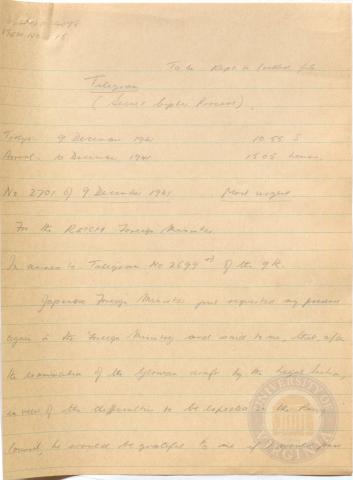 4098
Item No. 15
To be kept in locked file
Telegram
(Secret Cipher Process).
Tokyo 9 December 1941 10.55 S
Arrival 10 December 1941 1505 hours
No 2701 of 9 December 1941 Most urgent
For the REICH Foreign Minister
In annex to Telegram No 2699 of the 9th.
Japanese Foreign Minister just requested my presence
again in the Foreign Ministry and said to me, that, after
the examination of the German draft by the Legal Section,
in view of the difficulties to be expected in the Privy
Council, he would be grateful to me if I would
UNIVERSITY OF VIRGINIA